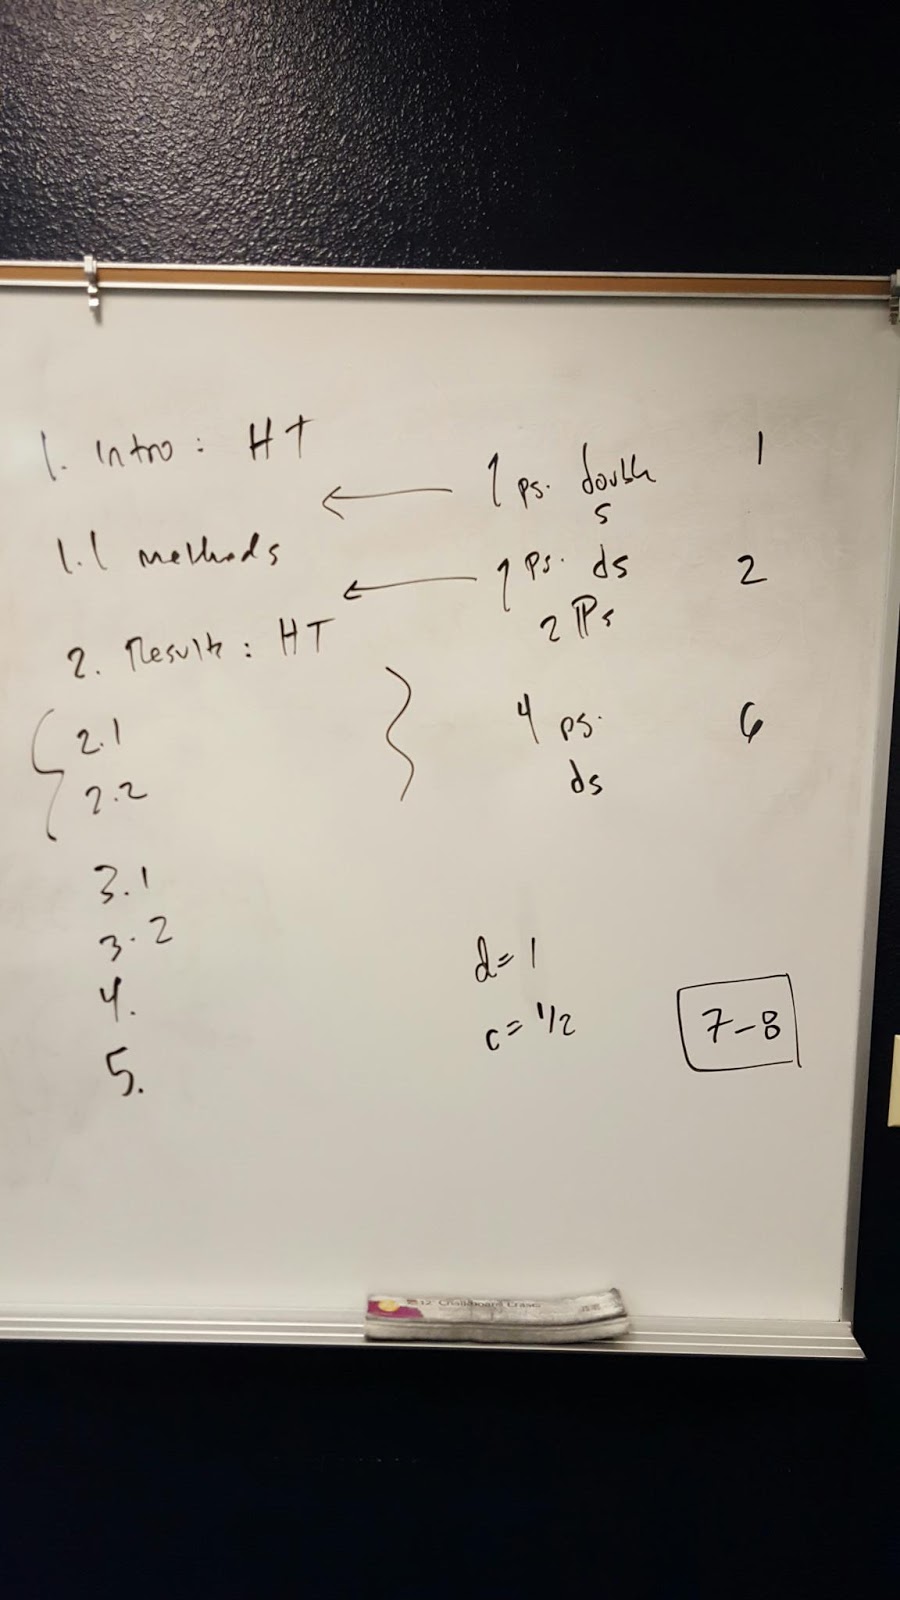 1. Intro: HT
1 ps. double
s
1
1.1 methods
1 ps. ds
2 Ps
2
2. Results: HT
2.1
2.2
4 ps.
ds
6
3.1
3.2
4.
5.
d=1
c=1/2
7-8
Chalkboard Eraser